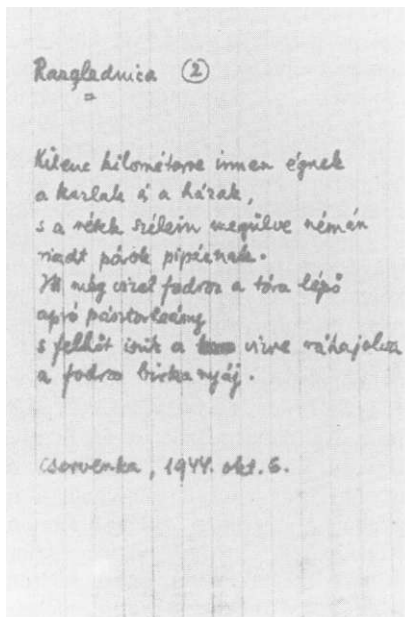 Razglednica (2)
Kilenc kilométerre innen égnek
a kazlak és a házak,
s a rétek szélein megülve némán
riadt pórok pipáznak.
Itt még vizet fodroz a tóra lépő
apró pásztorleány
s felhőt iszik a vizre ráhajolva
a fodros birkanyáj.
Cservenka, 1944. okt. 6.